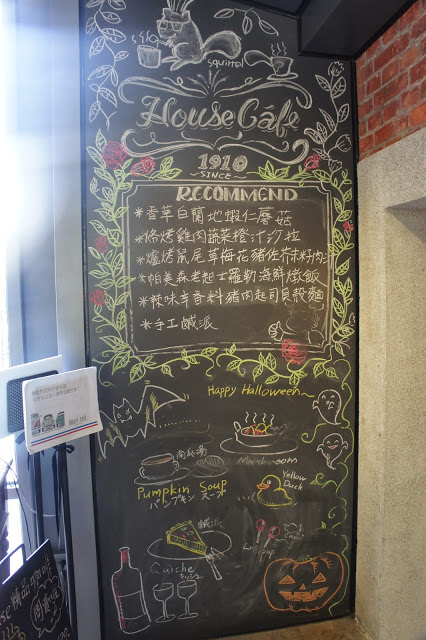 squirrel
House Cáfe
1910
SINCE
RECOMMEND
*香草白蘭地蝦仁蘑菇
*條烤雞肉蔬菜橙汁沙拉
*爐烤鼠尾草梅花豬佐芥末籽肉汁
*帕美森老起士羅勒海鮮燉飯
*辣味辛香料豬肉起司貝殼麵
*手工鹹派
Happy Halloween
南瓜湯
Mushroom
Pumpkin Soup
パンプキン スープ
Yellow
Duck
鹹派
Lollipop
Quiche
キッシュ